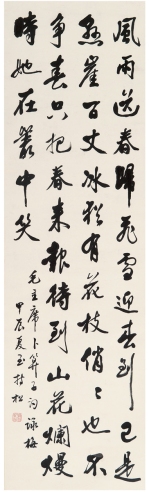 風雨送春歸飛雪迎春到已是
懸崖百丈冰猶有花枝俏〻也不
爭春只把春來報待到山花爛熳
時她在叢中笑
毛主席卜算子詞詠梅
甲辰夏松